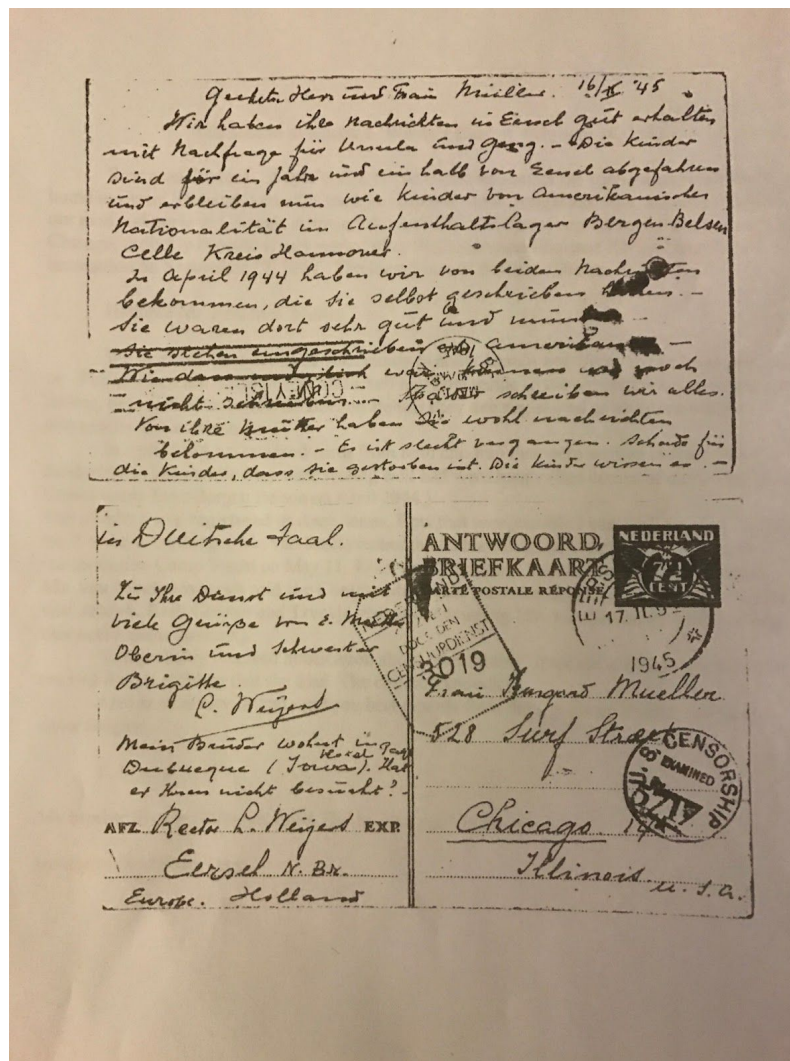 Geehrter Herr und Frau Müller. 16/II '45
Wir haben ihre Nachrichten in Eersel gut erhalten
mit Nachfrage für Ursula und Georg. – Die Kinder
sind für ein Jahr und ein halb von Eersel abgefahren
und erbleiben nun wie Kinder von Amerikanischer
Nationalität im Aufenthaltslager Bergen-Belsen
Celle Kreis Hannover.
In April 1944 haben wir von beiden Nachrichten
bekommen, die Sie selbst geschrieben –
Sie waren dort sehr gut und
Sie stehen eingeschrieben als –
noch
nicht schreiben. – schreiben wir alles.
Von ihre Mutter haben Sie wohl nachrichten
bekommen. – Es ist slecht vergangen. Schade für
die Kinder, dass sie gestorben ist. Die Kinder wissen es. –
in Duitsche Taal.
Zu Ihre Dienst und mit
viele Grüße von E. Mutter
Oberin und Schwester
Brigitte.
L. Weijers
Mein Bruder wohnt in
Dubueque (Iowa). Hat
er Ihnen nicht besucht? –
AFZ. Rector L. Weijers EXP.
Eersel N. Br.
Europe. Holland
ANTWOORD,
BRIEFKAART
CARTE POSTALE RÉPONSE
NEDERLAND
7½
CENT
EERSEL
17.II.
1945
DOOR DEN
CENSUURDIENST
2019
Frau Mueller
528 Surf Street
Chicago 14
Illinois
U.S.A.
U.S. CENSORSHIP
EXAMINED